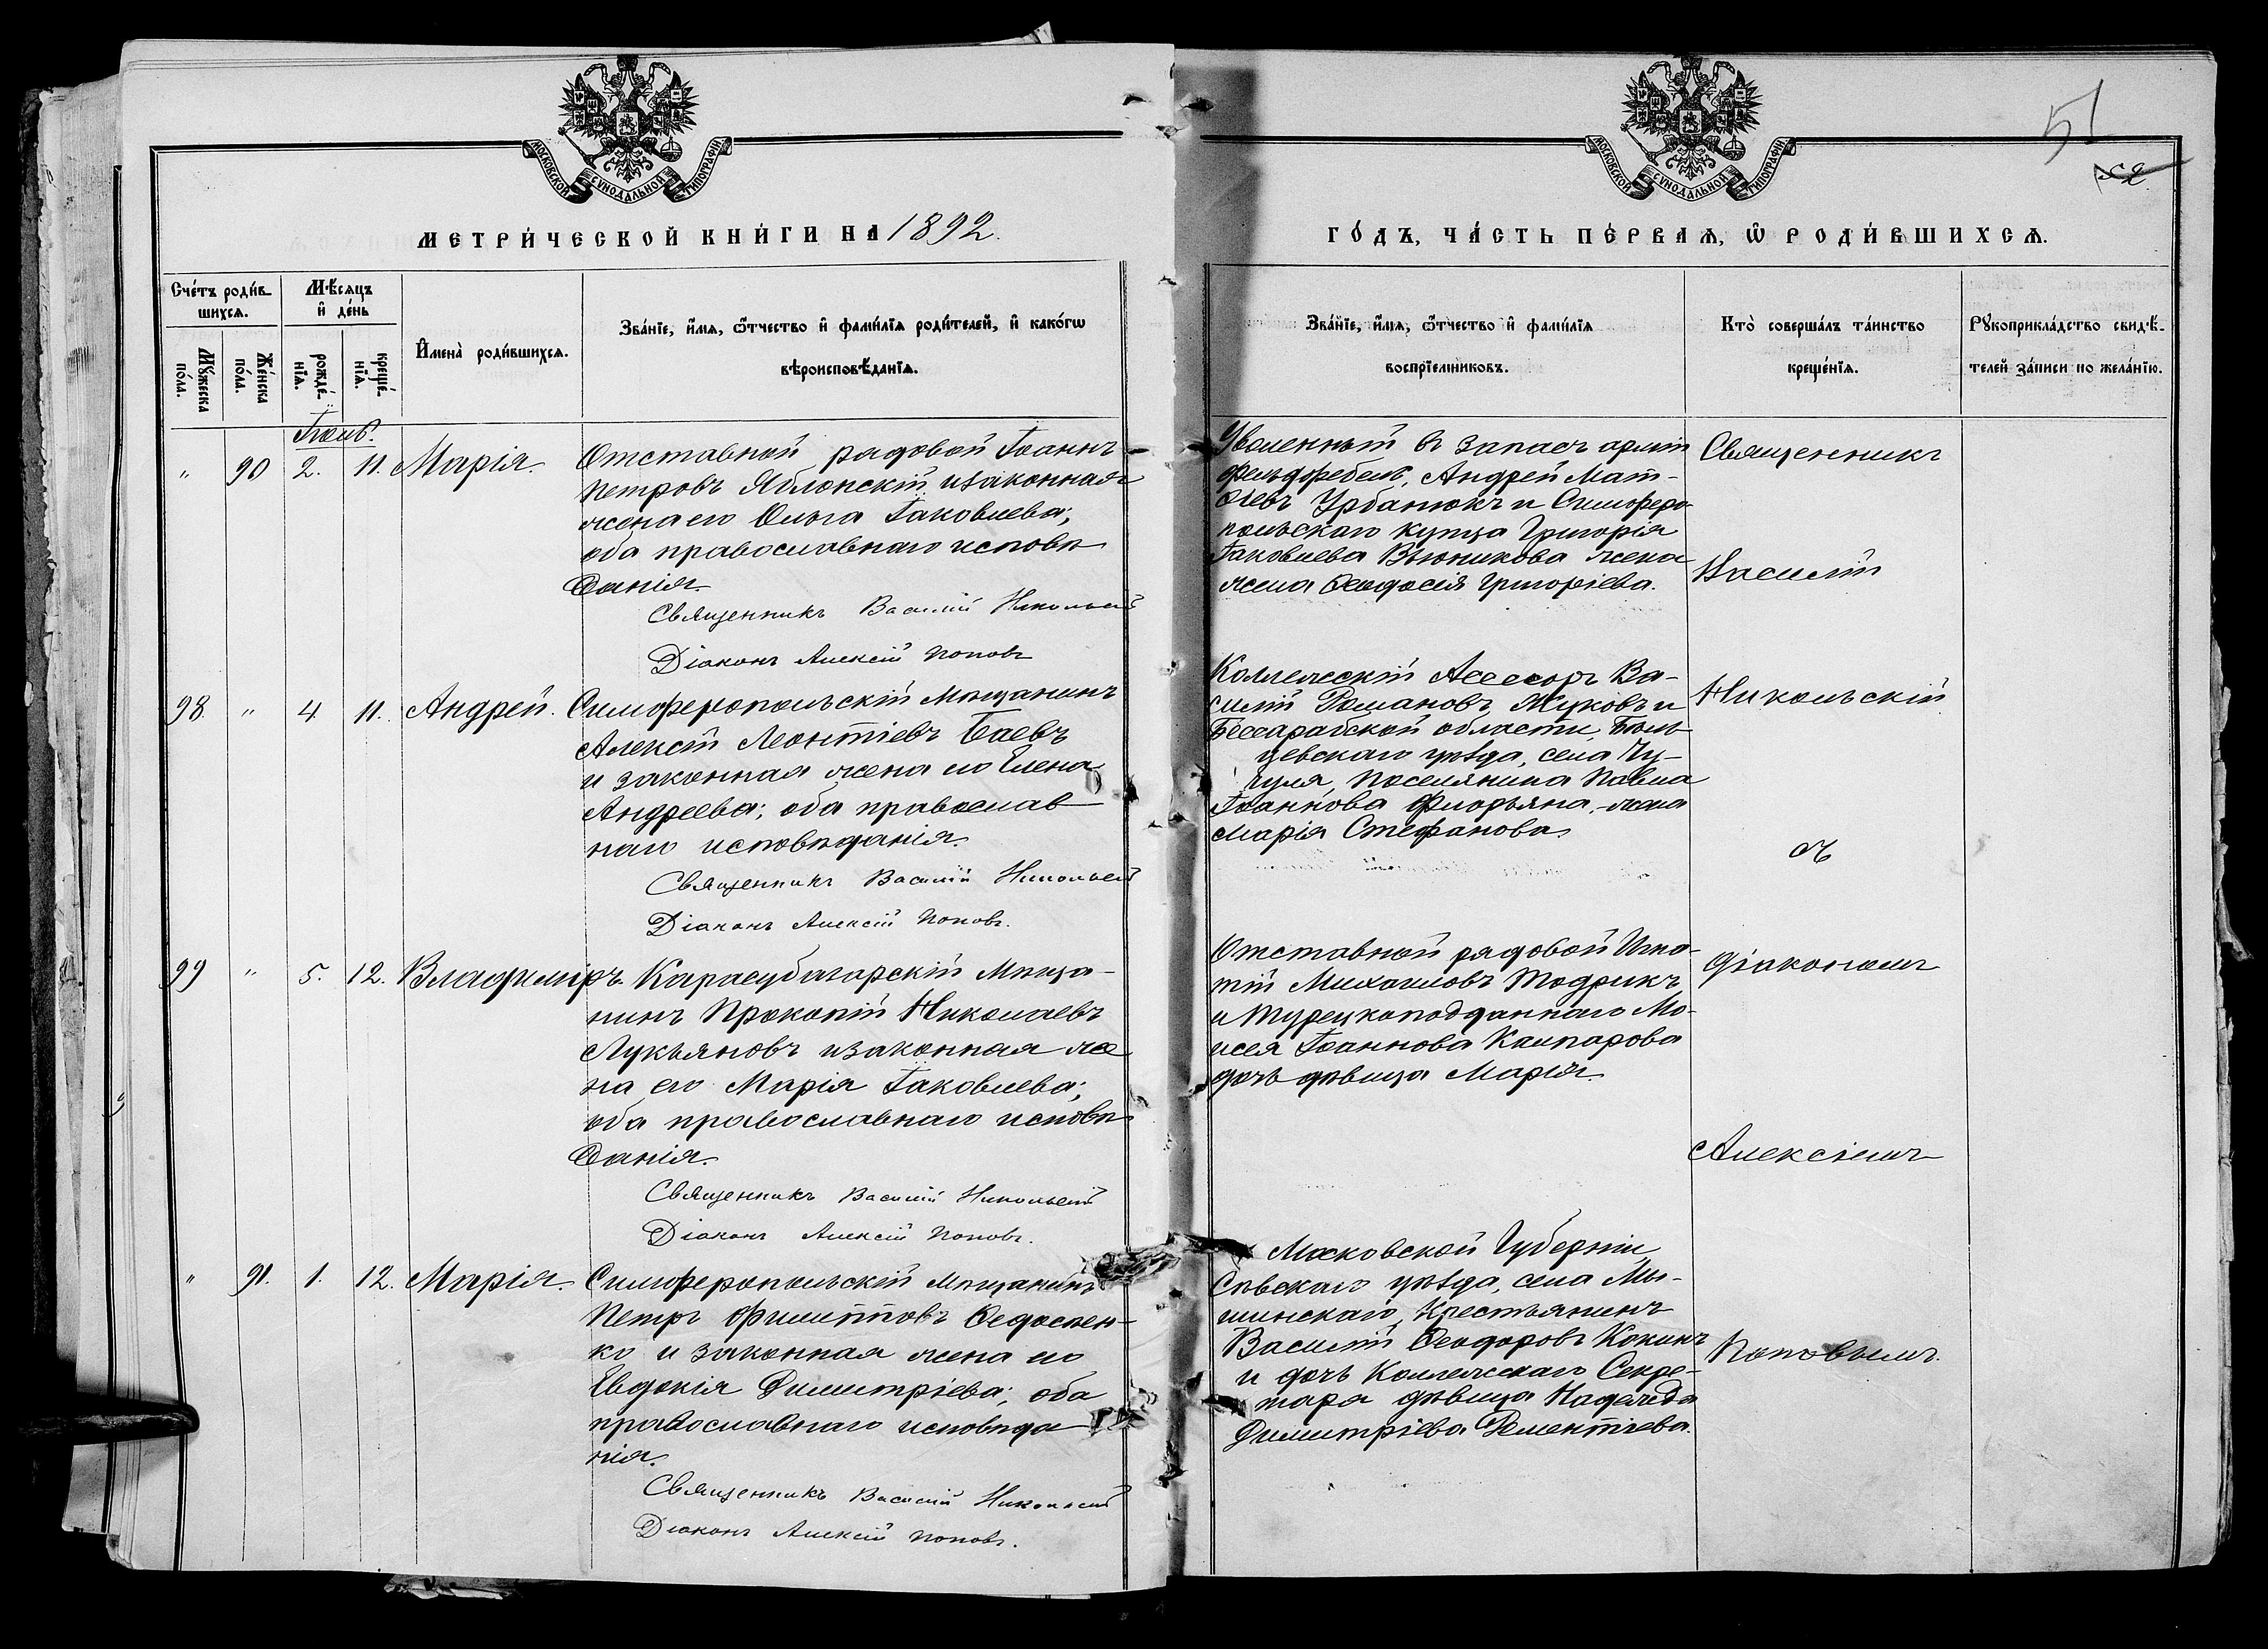 51
52.
МОСКОВСКОЙ СѴНОДАЛЬНОЙ ТИПОГРАФІИ
МОСКОВСКОЙ СѴНОДАЛЬНОЙ ТИПОГРАФІИ
МЕТРИ́ЧЕСКОЙ КНИ́ГИ НА 1892.
ГО́ДЪ, ЧА́СТЬ ПЕ́РВАѦ, Ѽ РОДИ́ВШИХСѦ.
Сче́тъ роди́в-
шихсѧ.
Мѣ́сяцъ
и҆ де́нь
Мꙋ́жеска
по́ла.
Же́нска
по́ла.
рожде́-
нїѧ.
креще́-
нїѧ.
И҆мена̀ роди́вшихсѧ.
Зва́нїе, и҆́мѧ, ѻ҆́тчество и҆ фами́лїѧ роди́телей, и҆ како́гѡ
вѣроисповѣ́данїѧ.
Зва́нїе, и҆́мѧ, ѻ҆́тчество и҆ фами́лїѧ
воспрїе́мниковъ.
Кто̀ соверша́лъ та́инство
креще́нїѧ.
Рꙋкоприкла́дство свидѣ́-
телей за́писи по жела́нїю.
Іюль.
" 90 2. 11. Марія.
Отставной рядовой Іоаннъ
Петровъ Яблонскій и законная
жена его Ольга Іаковлева;
оба православнаго исповѣ
данія.
Священникъ Василій Никольскій
Діаконъ Алексій Поповъ
Уволенный въ запасъ арміи
фельдфебель, Андрей Мат-
ѳіевъ Урбанюкъ и Симферо
польскаго купца Григорія
Іаковлева Вьюникова жена
жена Ѳеодосія Григоріева.
Священникъ
Василій
98. " 4 11. Андрей.
Симферопольскій Мѣщанинъ
Алексій Леонтіевъ Баевъ
и законная жена его Елена
Андреева; оба православ
наго исповѣданія.
Священникъ Василій Никольскій
Діаконъ Алексій Поповъ.
Коллежскій Асессоръ Ва-
силій Романовъ Жуковъ и
Бессарабской области, Бѣль
цевскаго уѣзда, села Чу-
гуля, поселянина Павла
Іоаннова Флорьяна, жена
Марія Стефанова.
Никольскій
съ
99 " 5. 12. Владиміръ.
Карасубазарскій Мѣща-
нинъ Прокопій Николаевъ
Лукьяновъ и законная же
на его Марія Іаковлева;
оба православнаго исповѣ
данія.
Священникъ Василій Никольскій
Діаконъ Алексій Поповъ.
Отставной рядовой Игна-
тій Михаиловъ Тодрикъ
и Турецкоподданнаго Мо-
исея Іоаннова Каспарова
дочь дѣвица Марія.
діакономъ
Алексіемъ
" 91. 1. 12. Марія.
Симферопольскій Мѣщанинъ
Петръ Филипповъ Ѳедосѣен-
ко и законная жена его
Евдокія Димитріева; оба
православнаго исповѣда
нія.
Священникъ Василій Никольскій
Діаконъ Алексій Поповъ.
Московской Губерніи,
уѣзда, села Мы-
шинскаго, Крестьянинъ
Василій Ѳеодоровъ Кокинъ
и дочь Коллежскаго Секре-
таря дѣвица Надежда
Димитріева Рементіева.
Поповымъ.